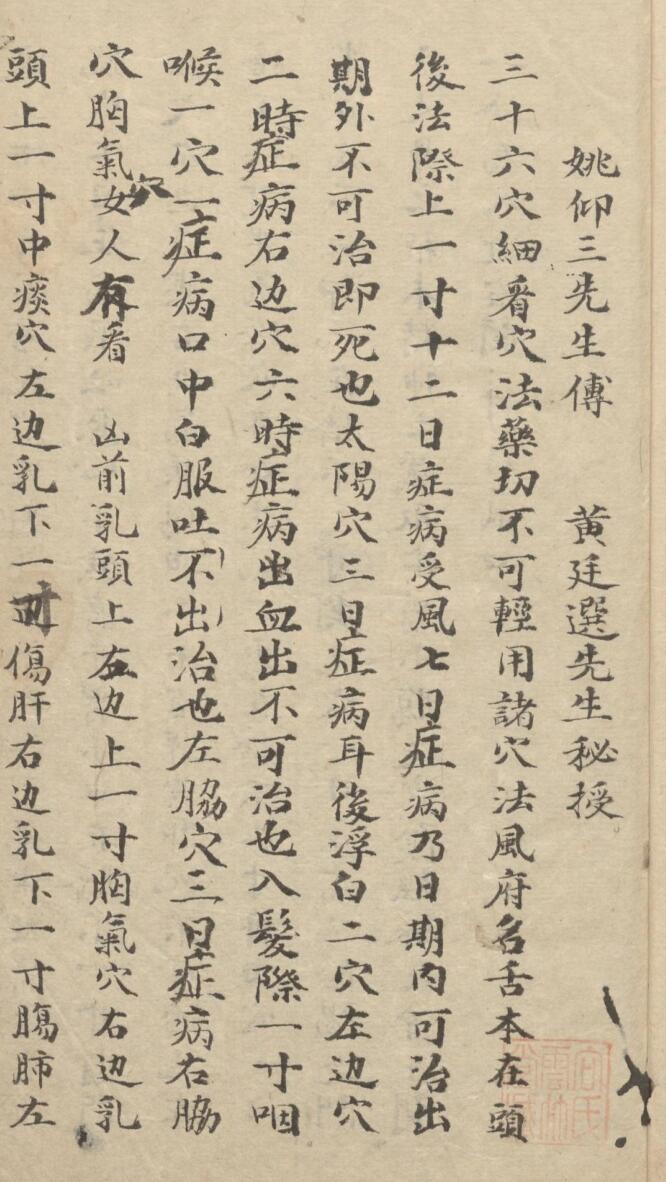 姚仰三先生傅　黄廷選先生秘授
三十六穴細看穴法藥切不可輕用諸穴法風府名舌本在頭
後法際上一寸十二日症病受風七日症病乃日期内可治出
期外不可治即死也太陽穴三日症病耳後浮白二穴左边穴
二時症病右边穴六時症病出血出不可治也入髮際一寸咽
喉一穴一症病口中白服吐不出治也左脇穴三日症病右脇
穴胸氣穴女人有看　凶前乳頭上左边上一寸胸氣穴右边乳
頭上一寸中痰穴左边乳下一寸傷肝右边乳下一寸傷肺左